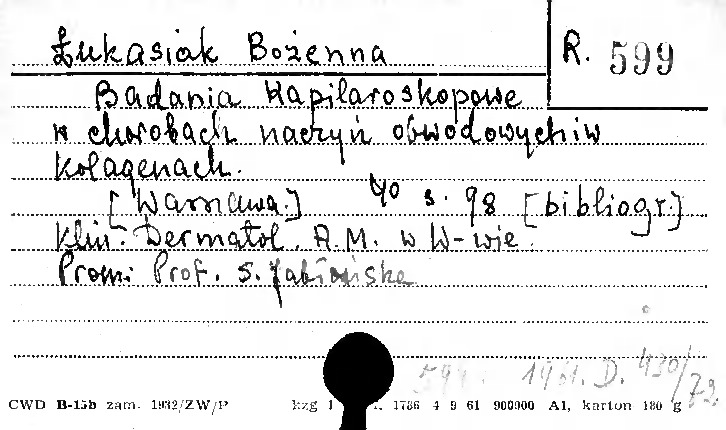 Łukasiak Bożenna R. 599
Badania kapilaroskopowe
w chorobach naczyń obwodowych i w
kolagenach.
[Warszawa.] 40 s. 98 [bibliogr.]
Klin. Dermatol. A.M. w W-wie.
Prom: Prof. S. Jabłońska
1961. D. 430/72
CWD B-15b zam. 1932/ZW/P kzg 1 1786 4 9 61 900900 A1, karton 180 g